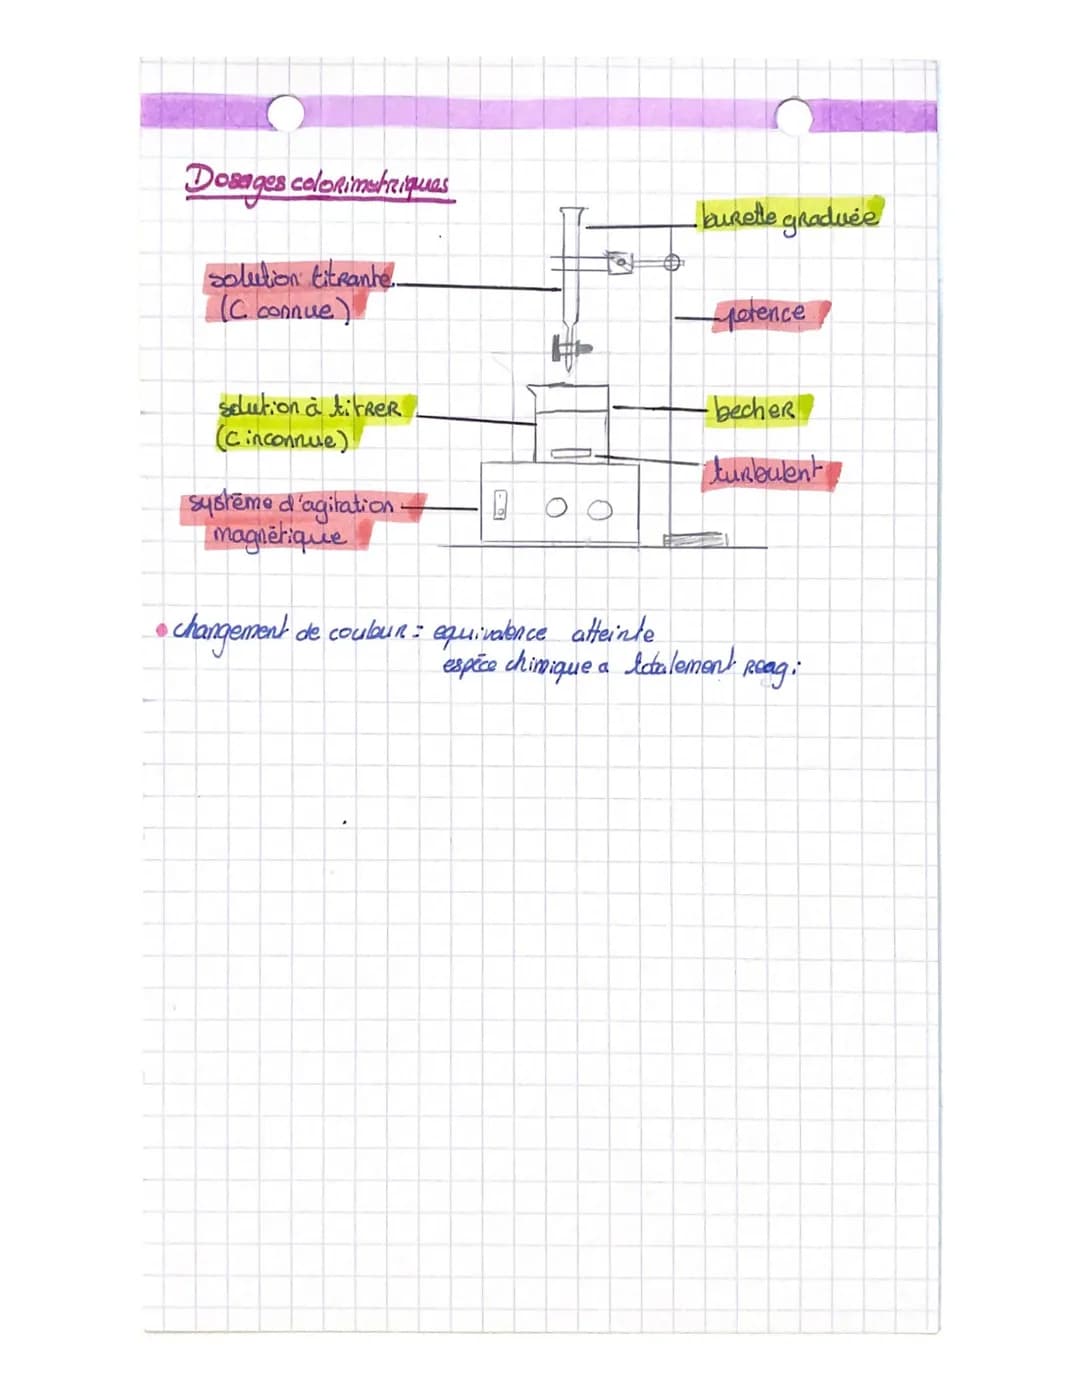 Dosages colorimetriques
burette graduée
solution titrante
(C connue)
potence
solution à titrer
(C inconnue)
becher
turbulent
système d'agitation
magnétique
• changement de couleur = equivalence atteinte
espèce chimique a totalement reagi